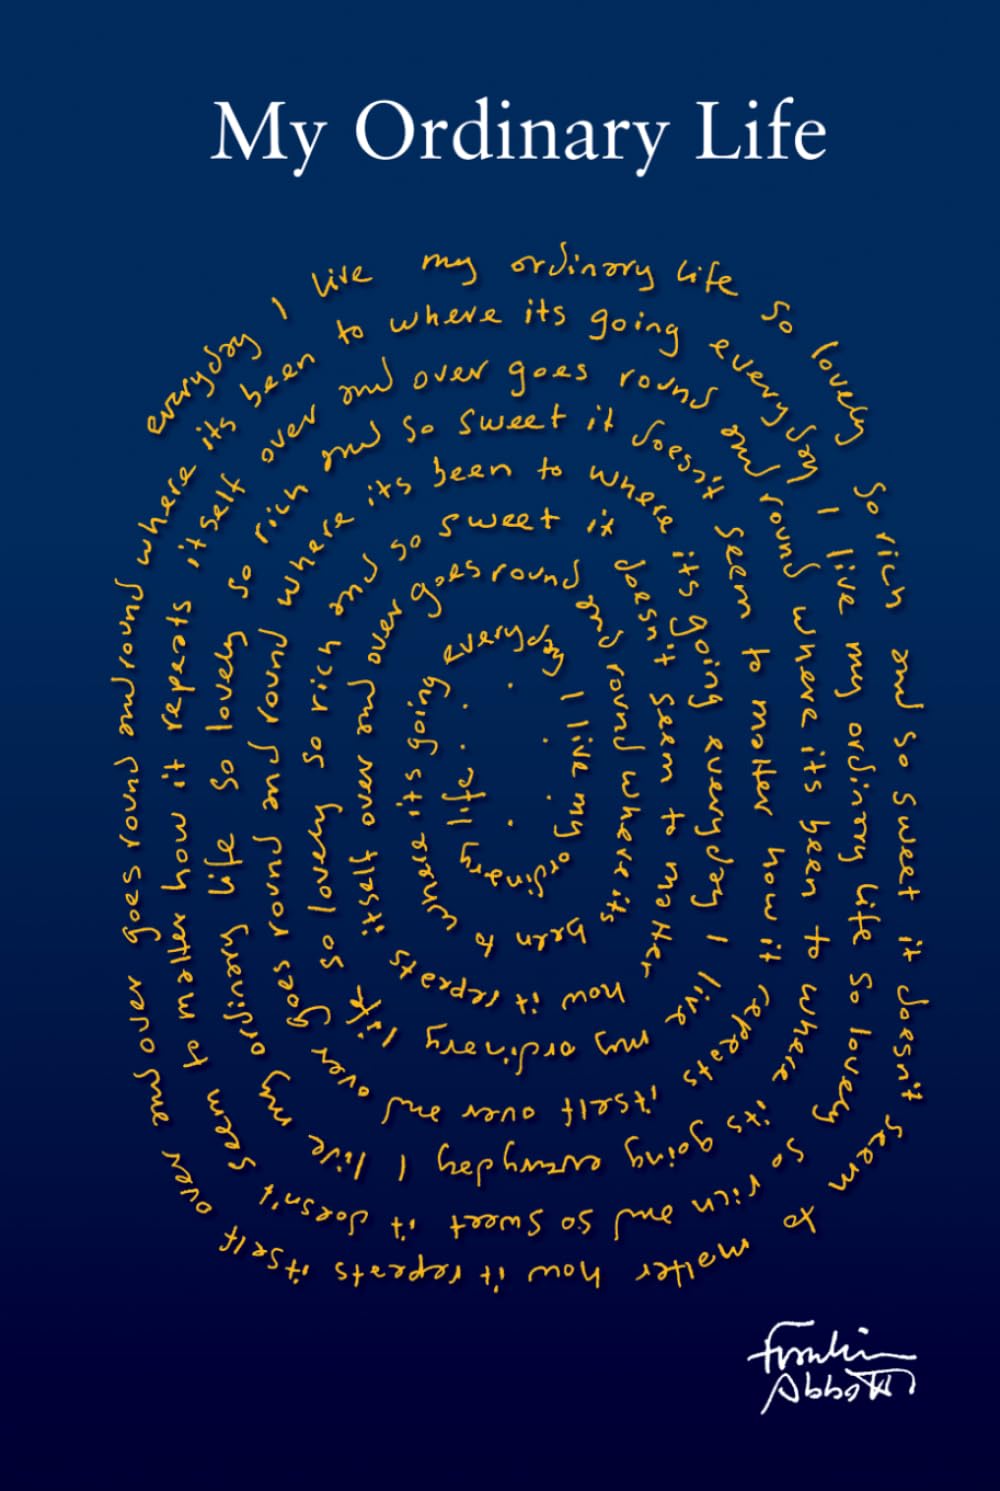 My Ordinary Life
everyday I live my ordinary life so lovely so rich and so sweet it doesn't seem to matter how it repeats itself over and over goes round and round where its been to where its going everyday I live my ordinary life so lovely so rich and so sweet it doesn't seem to matter how it repeats itself over and over goes round and round where its been to where its going everyday I live my ordinary life so lovely so rich and so sweet it doesn't seem to matter how it repeats itself over and over goes round and round where its been to where its going everyday I live my ordinary life so lovely so rich and so sweet it doesn't seem to matter how it repeats itself over and over goes round and round where its been to where its going everyday I live my ordinary life . . . . . .
Franklin
Abbott